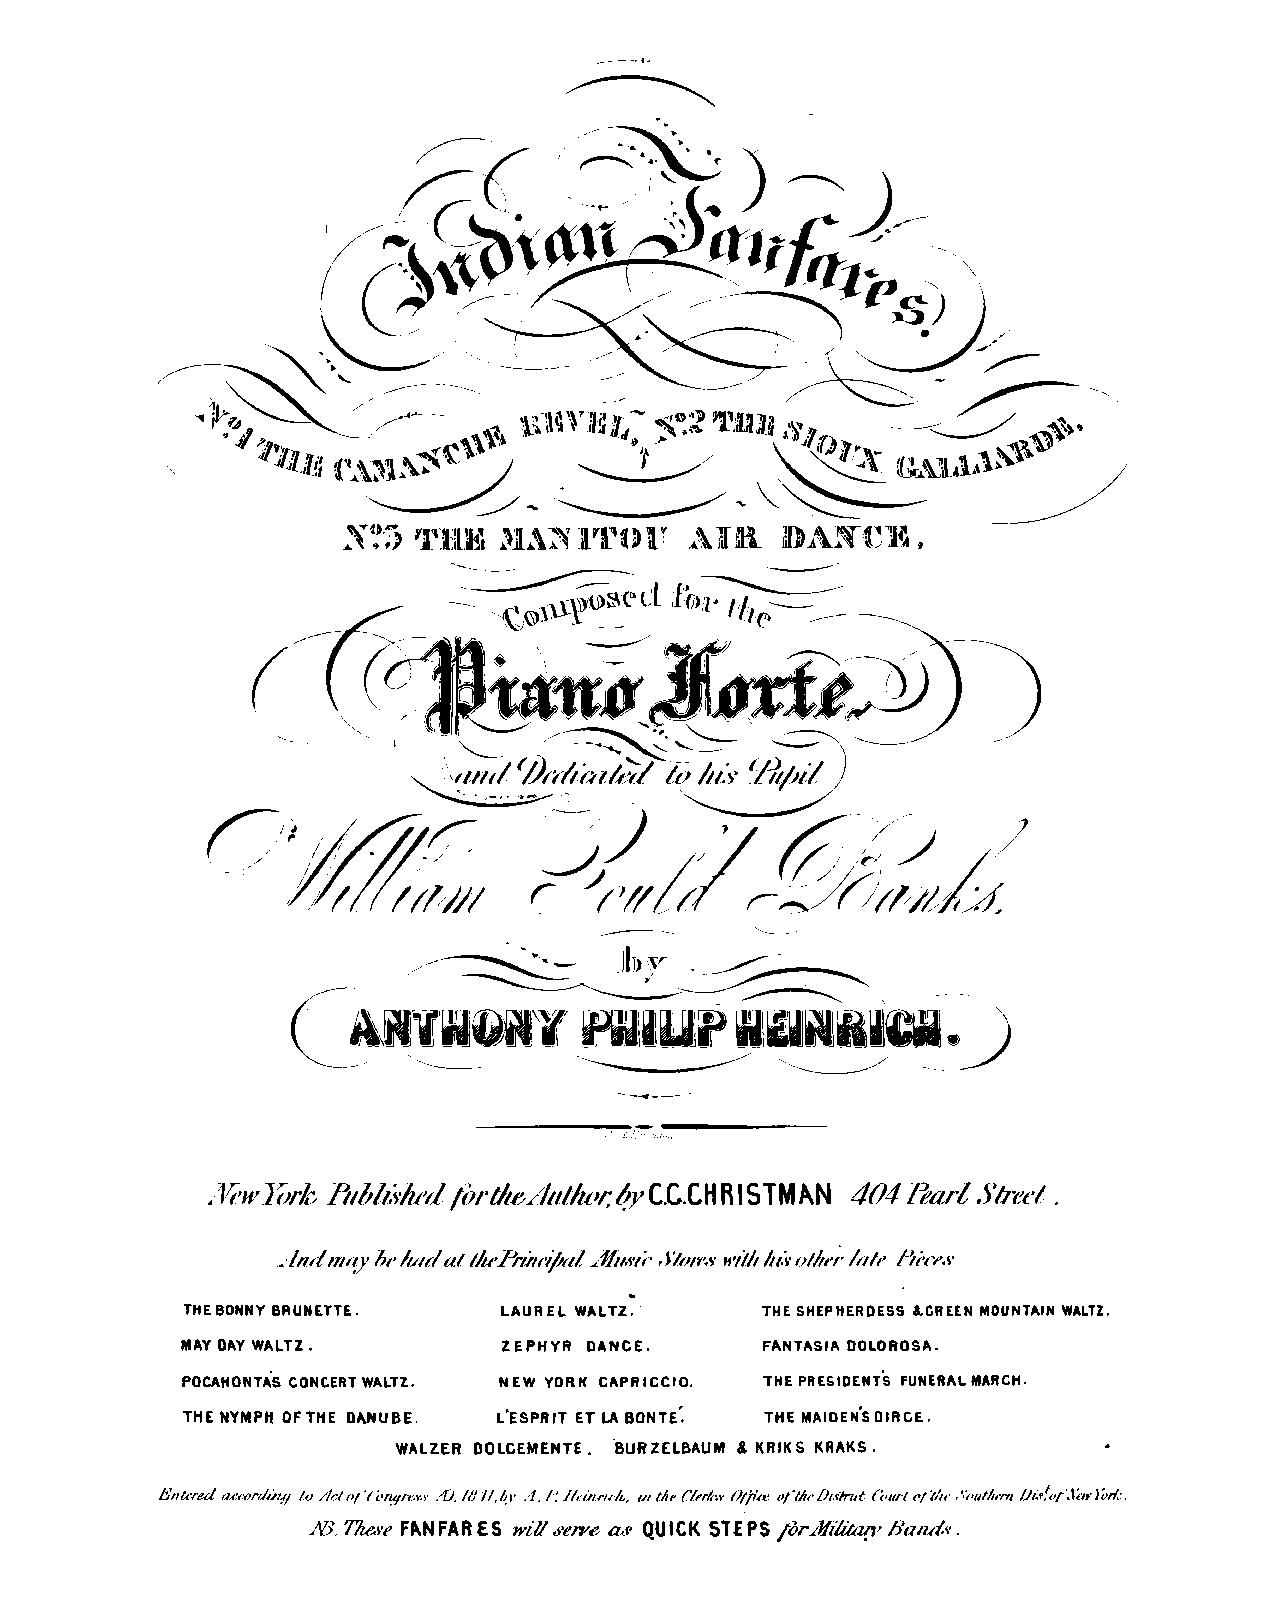 Indian Fanfares.
No. 1 THE CAMANCHE REVEL, No. 2 THE SIOUX GALLIARDE,
No. 3 THE MANITOU AIR DANCE.
Composed for the
Piano Forte.
and Dedicated to his Pupil
William Gould Banks.
by
ANTHONY PHILIP HEINRICH.
New York Published for the Author, by C.C. CHRISTMAN 404 Pearl Street.
And may be had at the Principal Music Stores with his other late Pieces
THE BONNY BRUNETTE. LAUREL WALTZ. THE SHEPHERDESS & GREEN MOUNTAIN WALTZ.
MAY DAY WALTZ. ZEPHYR DANCE. FANTASIA DOLOROSA.
POCAHONTA'S CONCERT WALTZ. NEW YORK CAPRICCIO. THE PRESIDENT'S FUNERAL MARCH.
THE NYMPH OF THE DANUBE. L'ESPRIT ET LA BONTÉ. THE MAIDEN'S DIRGE.
WALZER DOLCEMENTE. BURZELBAUM & KRIKS KRAKS.
Entered according to Act of Congress AD. 1841, by A. P. Heinrich, in the Clerks Office of the District Court of the Southern Dist. of New York.
NB. These FANFARES will serve as QUICK STEPS for Military Bands.